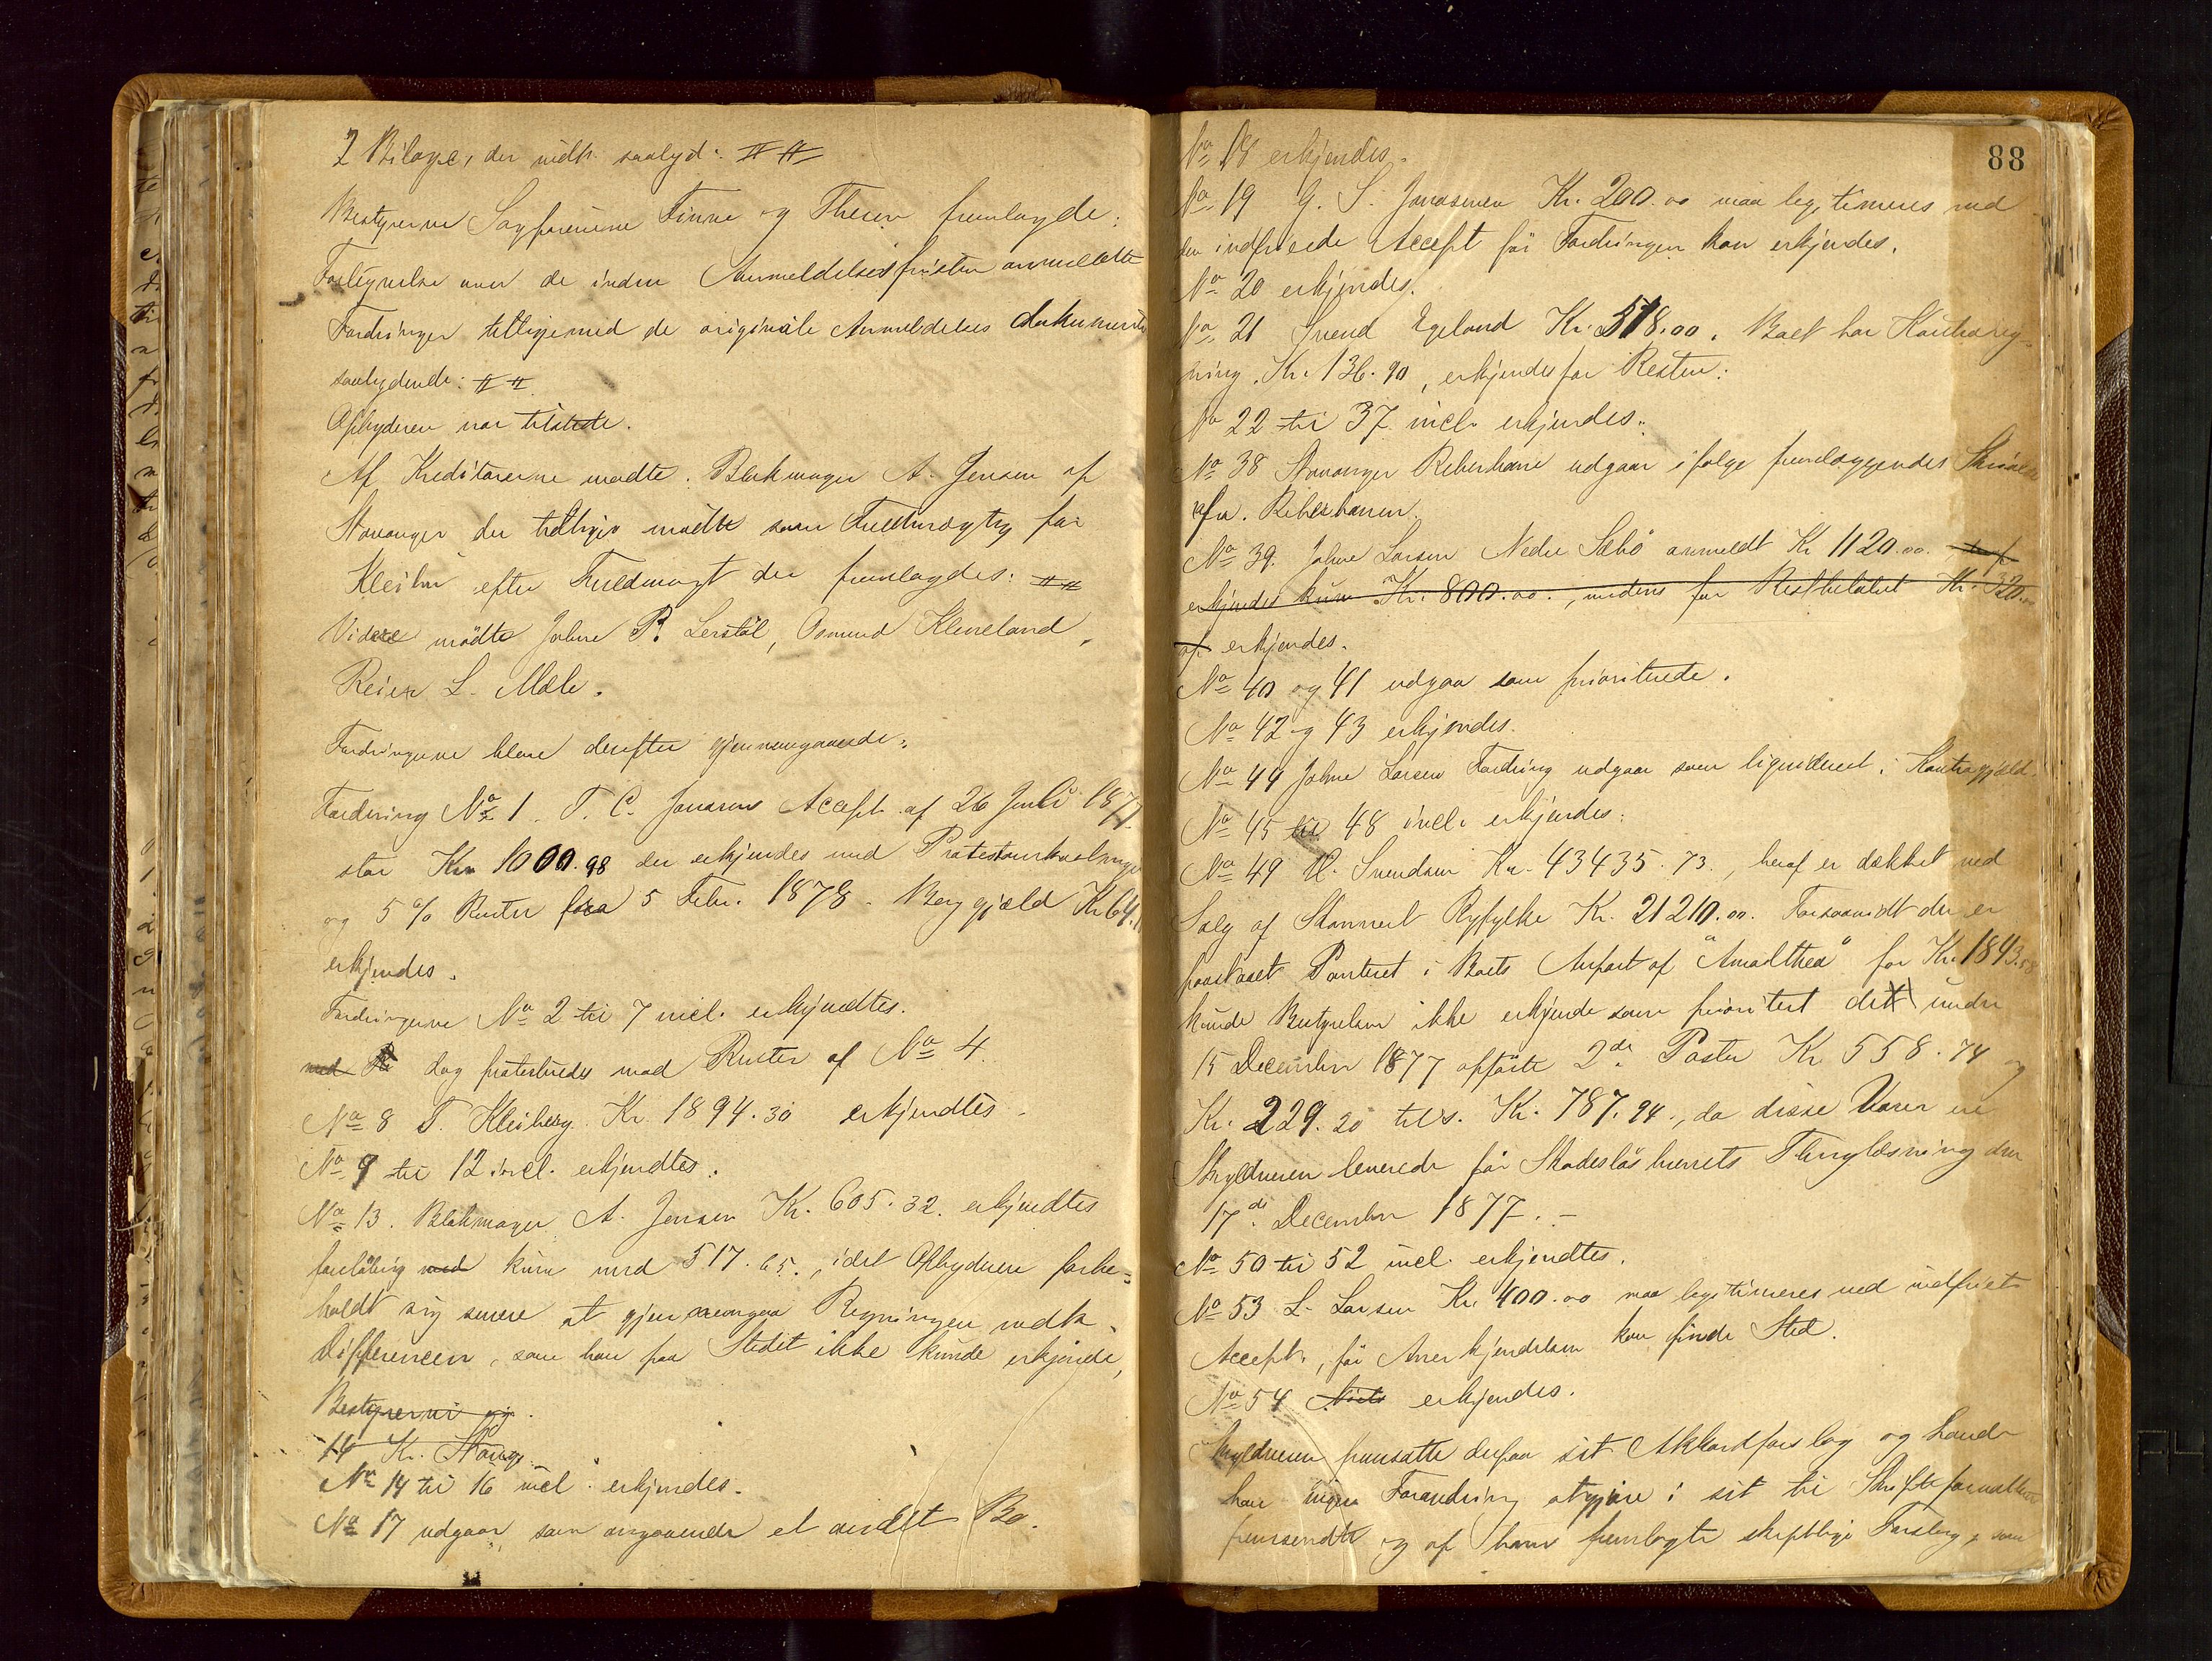 2 Bilage, der vedh. saalyd: # #
Bestyrerne Sagførerne Finne og Thesen fremlagde:
Fortegnelse over de inden Anmeldelsesfristen anmeldte
Fordringer tilligemed de originale Anmeldelses dokumenter
saalydende: # #
Opbyderen var tilstede.
Af Kreditorerne mødte: Blokmager A. Jensen af
Stavanger der tillige mødte som Fuldmægtig for
Kleiber efter Fuldmagt der fremlagdes: # #
Videre mødte Johne P. Lerstöl, Osmund Kleveland,
Reier L. Mæle.
Fordringerne bleve derefter gjennemgaaede:
Fordring No 1. T. C. Jonasens Accept af 26 Juli 1877
stor Kr. 1000.98 der erkjendes med Protestomkostninger
og 5 % Renter fra 5 Febr. 1878. Boggjæld Kr 64.
erkjendes.
Fordringerne No 2 til 7 incl. erkjendtes.
med dog protesteredes mod Renter af No 4.
No 8 T. Kleiberg Kr. 1894.30 erkjendtes.
No 9 til 12 incl. erkjendtes.
No 13. Blokmager A. Jensen Kr. 605.32. erkjendtes
foreløbig med kun med 517.65., idet Opbyderen forbe-
holdt sig senere at gjennemgaa Regningen vedk.
Differencen, som han paa Stedet ikke kunde erkjende,
Bestyrerne og
14 Kr. Stange
No 14 til 16 incl. erkjendes.
No 17 udgaar, som angaaende et andet Bo.
88
No 18 erkjendes.
No 19 G. S. Jonasenen Kr. 200.00 maa legitimeres ved
den indfriede Accept för Fordringen kan erkjendes.
No 20 erkjendes.
No 21 Svend Egeland Kr. 518.00. Boet har Kontrareg-
ning. Kr. 136.90, erkjendes for Resten.
No 22 til 37 incl. erkjendes.
No 38 Stavanger Reberbane udgaar ifølge fremlæggendes Skrivelse
fra Reberbanen.
No 39. Johne Larsen Nedre Sæbö anmeldt Kr 1120.00.
erkjendes kun Kr. 800.00., medens for Restbeløbet Kr. 320.00
af erkjendes.
No 40 og 41 udgaa som prioriterede.
No 42 og 43 erkjendes.
No 44 Johne Larsen Fordring udgaar som liquideret i Kontragjæld
No 45 til 48 incl. erkjendes.
No 49 Svendsen Kr. 43435.73., heraf er dækket ved
Salg af Skonnert Ryfylke Kr. 21210.00. Forsaavidt der er
paastaaet Panteret i Boets Anpart af "Amalthea" for Kr. 1843.
kunde Bestyrelsen ikke erkjende som prioritert det under
15 December 1877 opførte 2de Poster Kr 558.74 og
Kr. 229.20 tils. Kr. 787.94., da disse Varer ere
Skyldneren leverede för Skadeslösbrevets Thinglæsning den
17de December 1877. –
No 50 til 52 incl. erkjendtes.
No 53 L. Larsen Kr. 400.00 maa legitimeres ved indfriet
Accept, för Anerkjendelsen kan finde Sted.
No 54 erkjendes.
Skyldneren fremsatte derpaa sit Akkordforslag og havde
han ingen Forandring at gjøre i sit til Skifteforvalteren
fremsendte og af ham fremlagte skriftlige Forslag, som